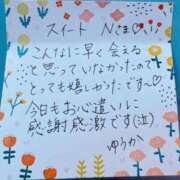 スイート Nさま♡
こんなに早く会える
と思っていなかったので
とっても嬉しかったです〜♡
今日もお心遣いに
感謝感激です(泣)
ゆうか